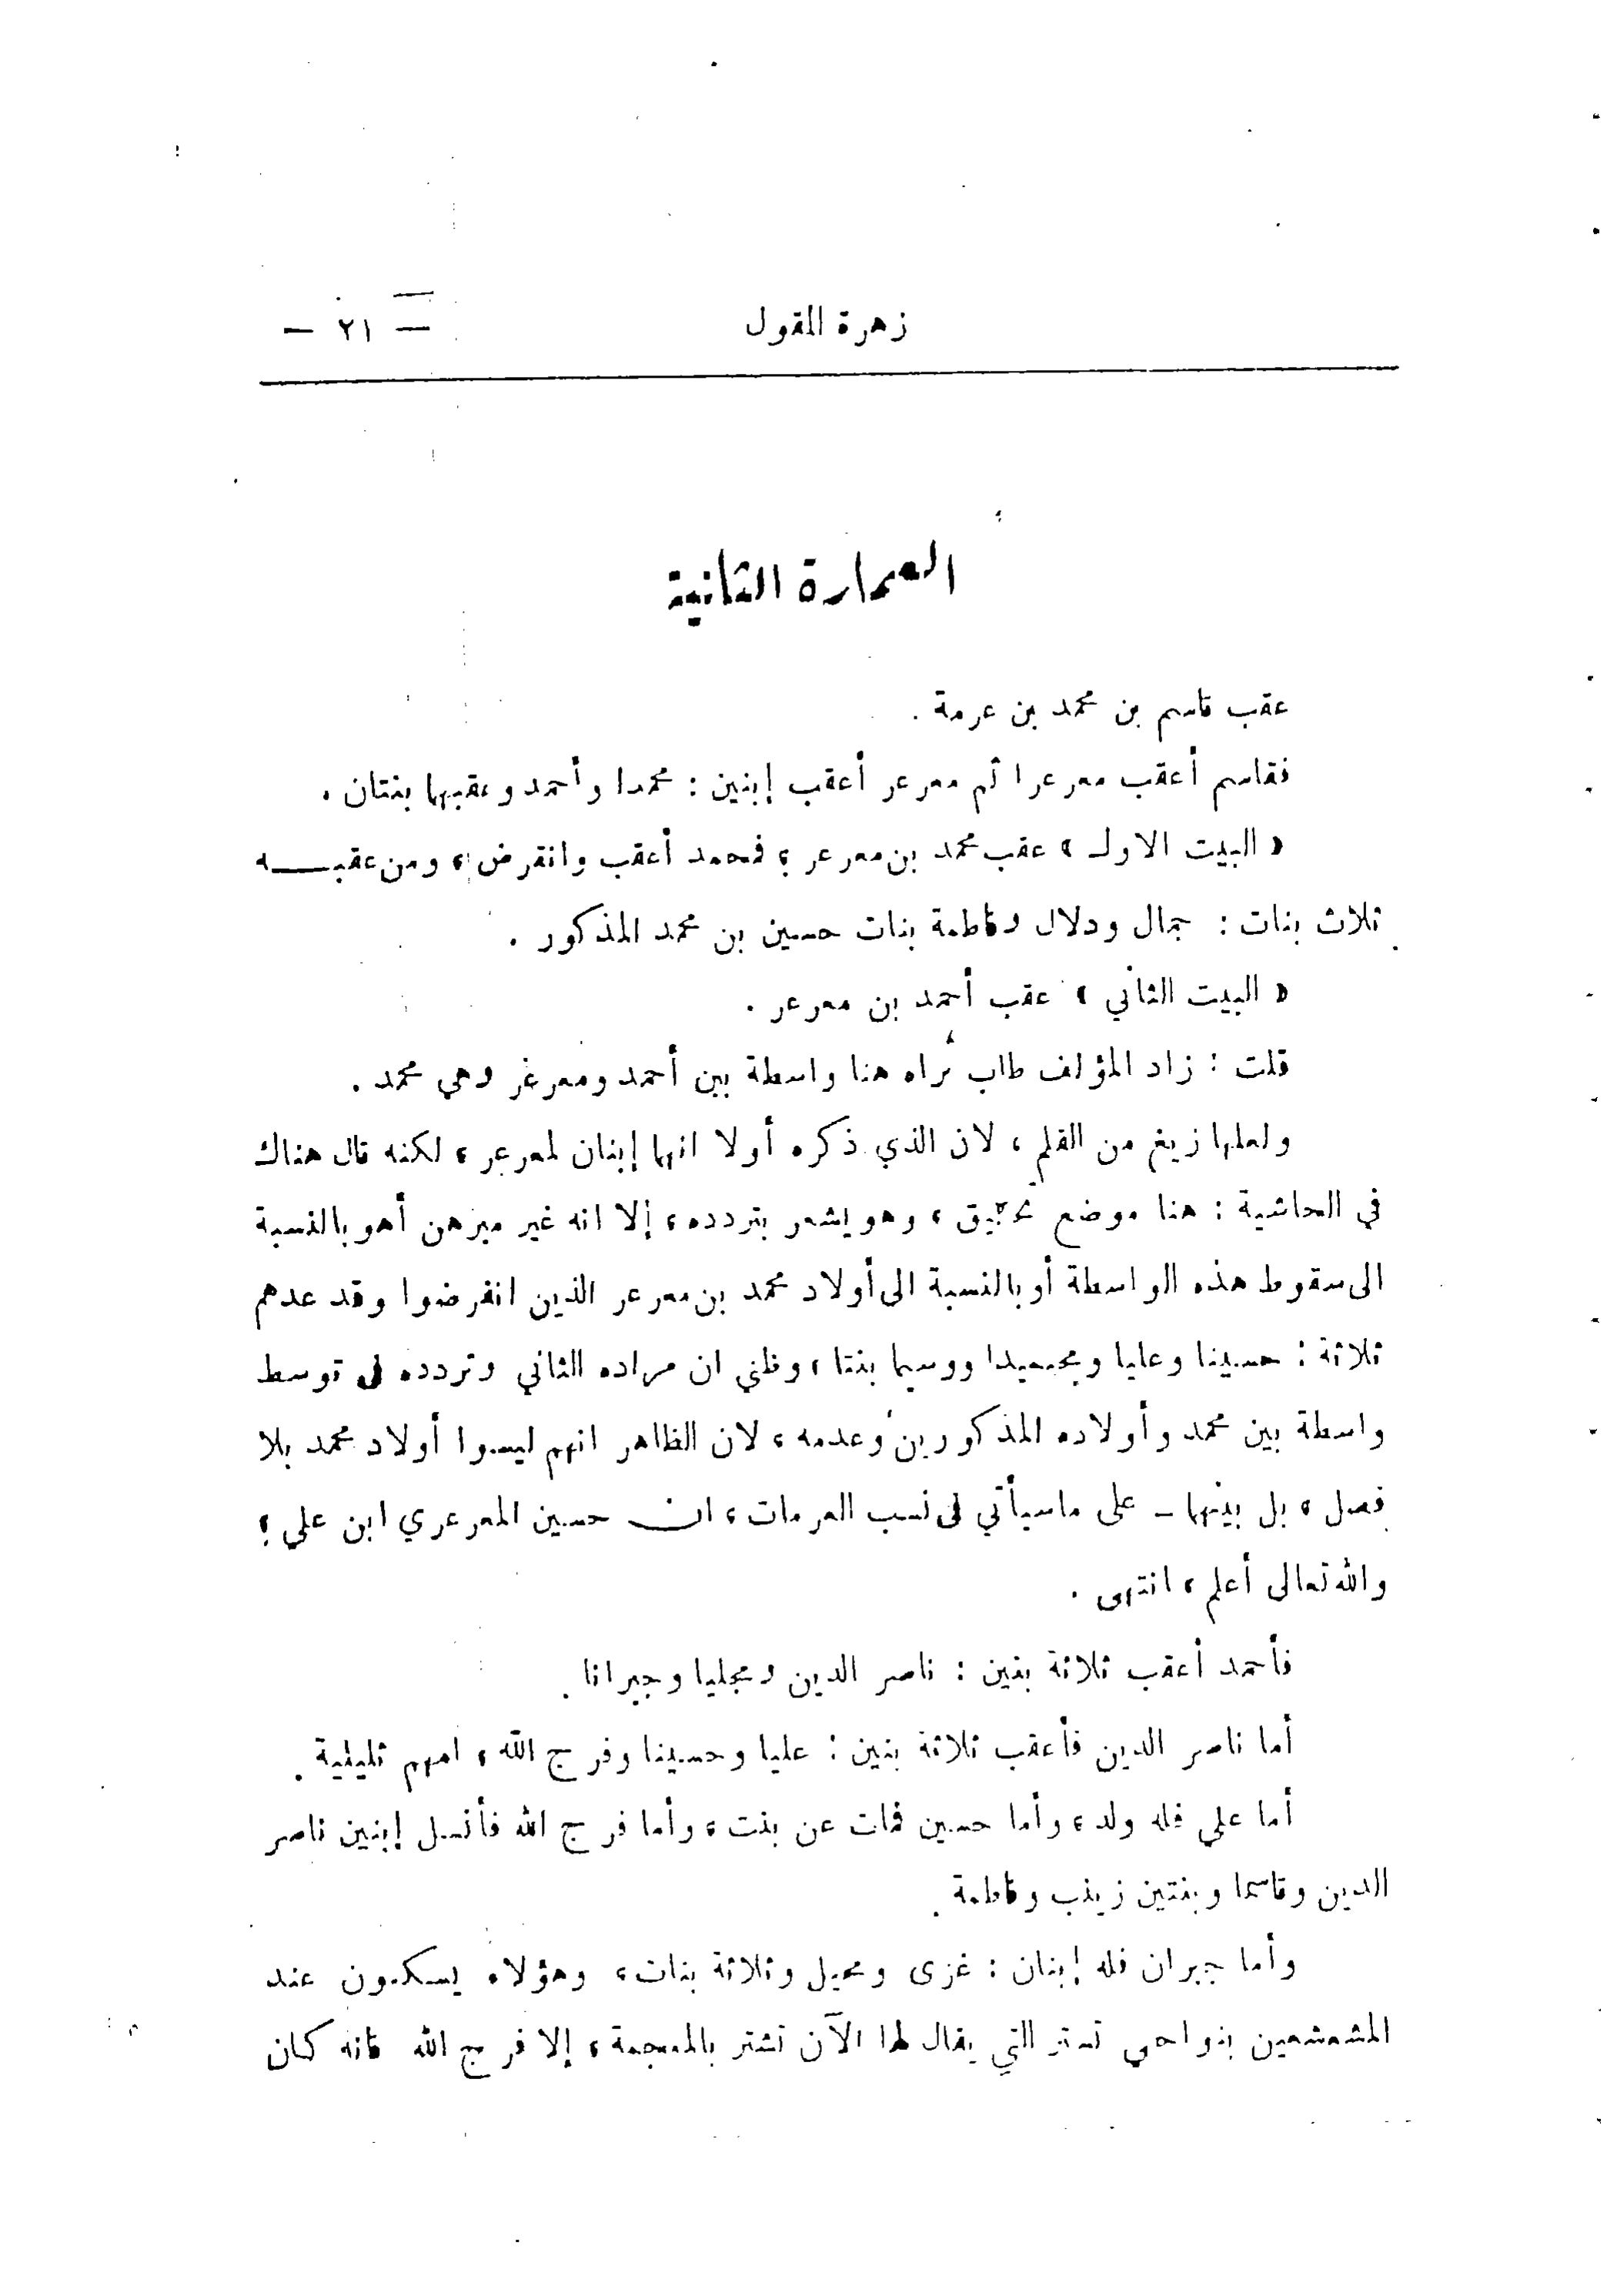 زهرة المقول
— ٢١ —
العمارة الثانية
عقب قاسم بن محمد بن عرمة .
فقاسم أعقب معرعرا ثم معرعر أعقب إبنين : محمدا وأحمد وعقبهما بنتان .
« البيت الاول » عقب محمد بن معرعر ؛ فمحمد أعقب وانقرض ، ومن عقبه
ثلاث بنات : جمال ودلال وفاطمة بنات حسين بن محمد المذكور .
« البيت الثاني » عقب أحمد بن معرعر .
قلت : زاد المؤلف طاب ثراه هنا واسطة بين أحمد ومعرعر وهي محمد .
ولعلها زيغ من القلم ، لان الذي ذكره أولا انهما إبنان لمعرعر ، لكنه قال هناك
في الحاشية : هنا موضع تحقيق ، وهو يشعر بتردده ، إلا انه غير مبرهن أهو بالنسبة
الى سقوط هذه الواسطة أو بالنسبة الى أولاد محمد بن معرعر الذين انقرضوا وقد عدهم
ثلاثة : حسينا وعليا ووسيما بنتا ، وظني ان مراده الثاني وتردده في توسط
واسطة بين محمد وأولاده المذكورين وعدمه ، لان الظاهر انهم ليسوا أولاد محمد بلا
فصل ، بل بينهما – على ماسيأتي في نسب العرمات ، ان حسين المعرعري ابن علي ؛
والله تعالى أعلم ، انتهى .
فأحمد أعقب ثلاثة بنين : ناصر الدين ومجليا وجبرانا .
أما ناصر الدين فأعقب ثلاثة بنين : عليا وحسينا وفرج الله ، امهم ثليثية .
أما علي فله ولد ، وأما حسين فمات عن بنت ، وأما فرج الله فأنسل إبنين ناصر
الدين وقاسما وبنتين زينب وفاطمة .
وأما جبران فله إبنان : غزى ومحيل وثلاثة بنات ، وهؤلاء يسكنون عند
المشعشعين بنواحي تستر التي يقال لها الآن تشتر بالمعجمة ، إلا فرج الله فانه كان